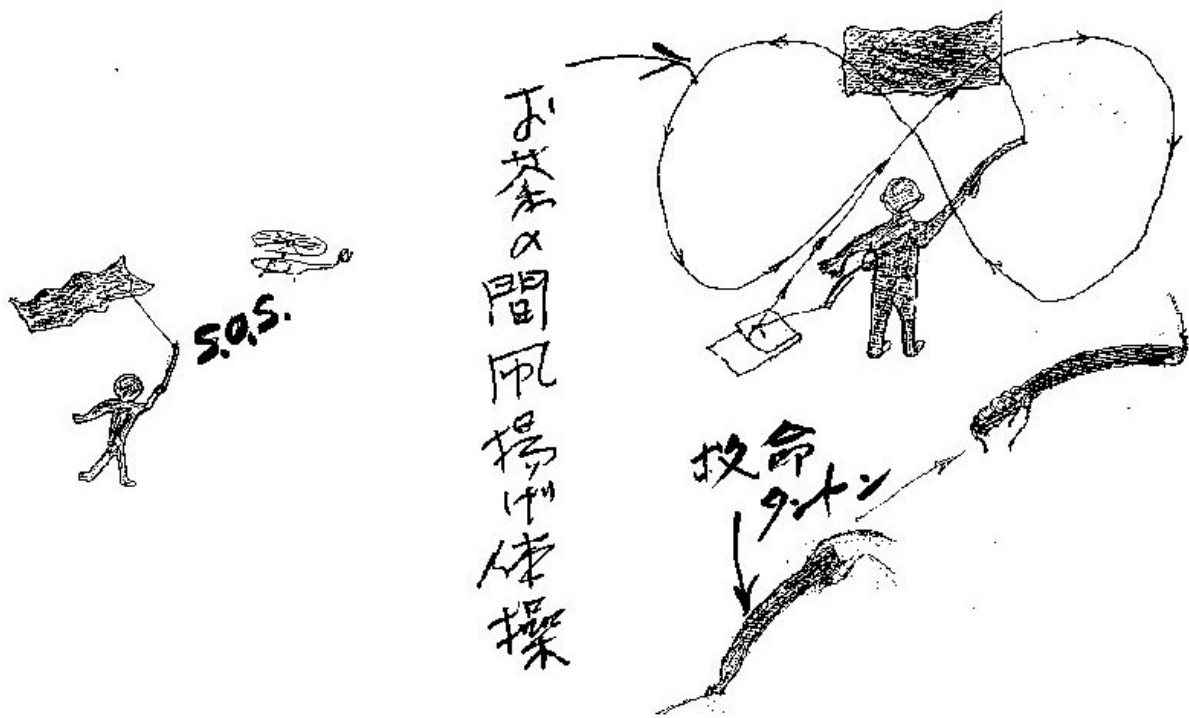 S.O.S.
お茶の間凧揚げ体操
救命
タントン